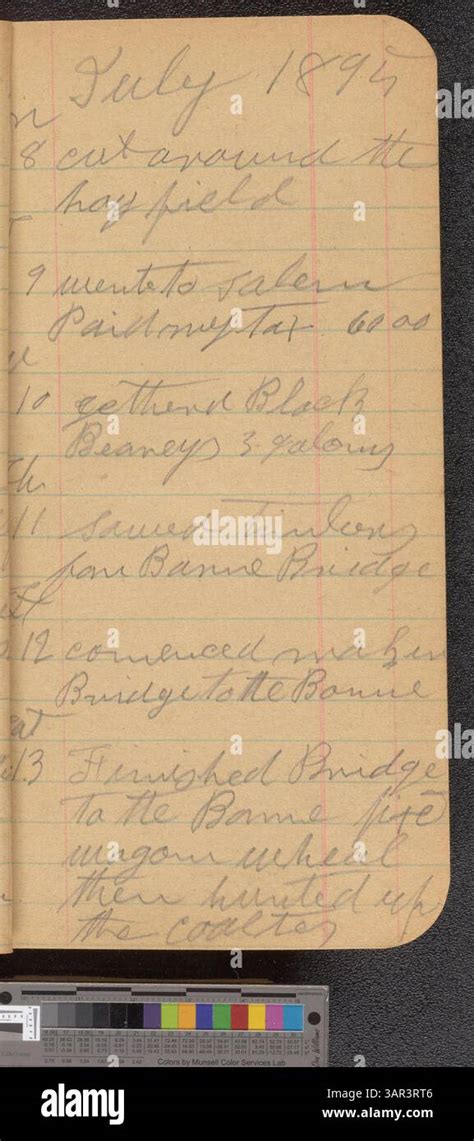 July 1895
8 cut around the
hay field
9 wente to Salem
Paid my tax 60 00
10 gethend Black
Beareys 3 galons
Th
11 sawed Timbers
for Barne Bridge
12 comenced maken
Bridge to the Barne
Sat
13 Finished Bridge
to the Barne fixed
wagon wheal
then hunted up
the coaltes
Colors by Munsell Color Services Lab
alamy
Image ID: 3AR3RT6
www.alamy.com